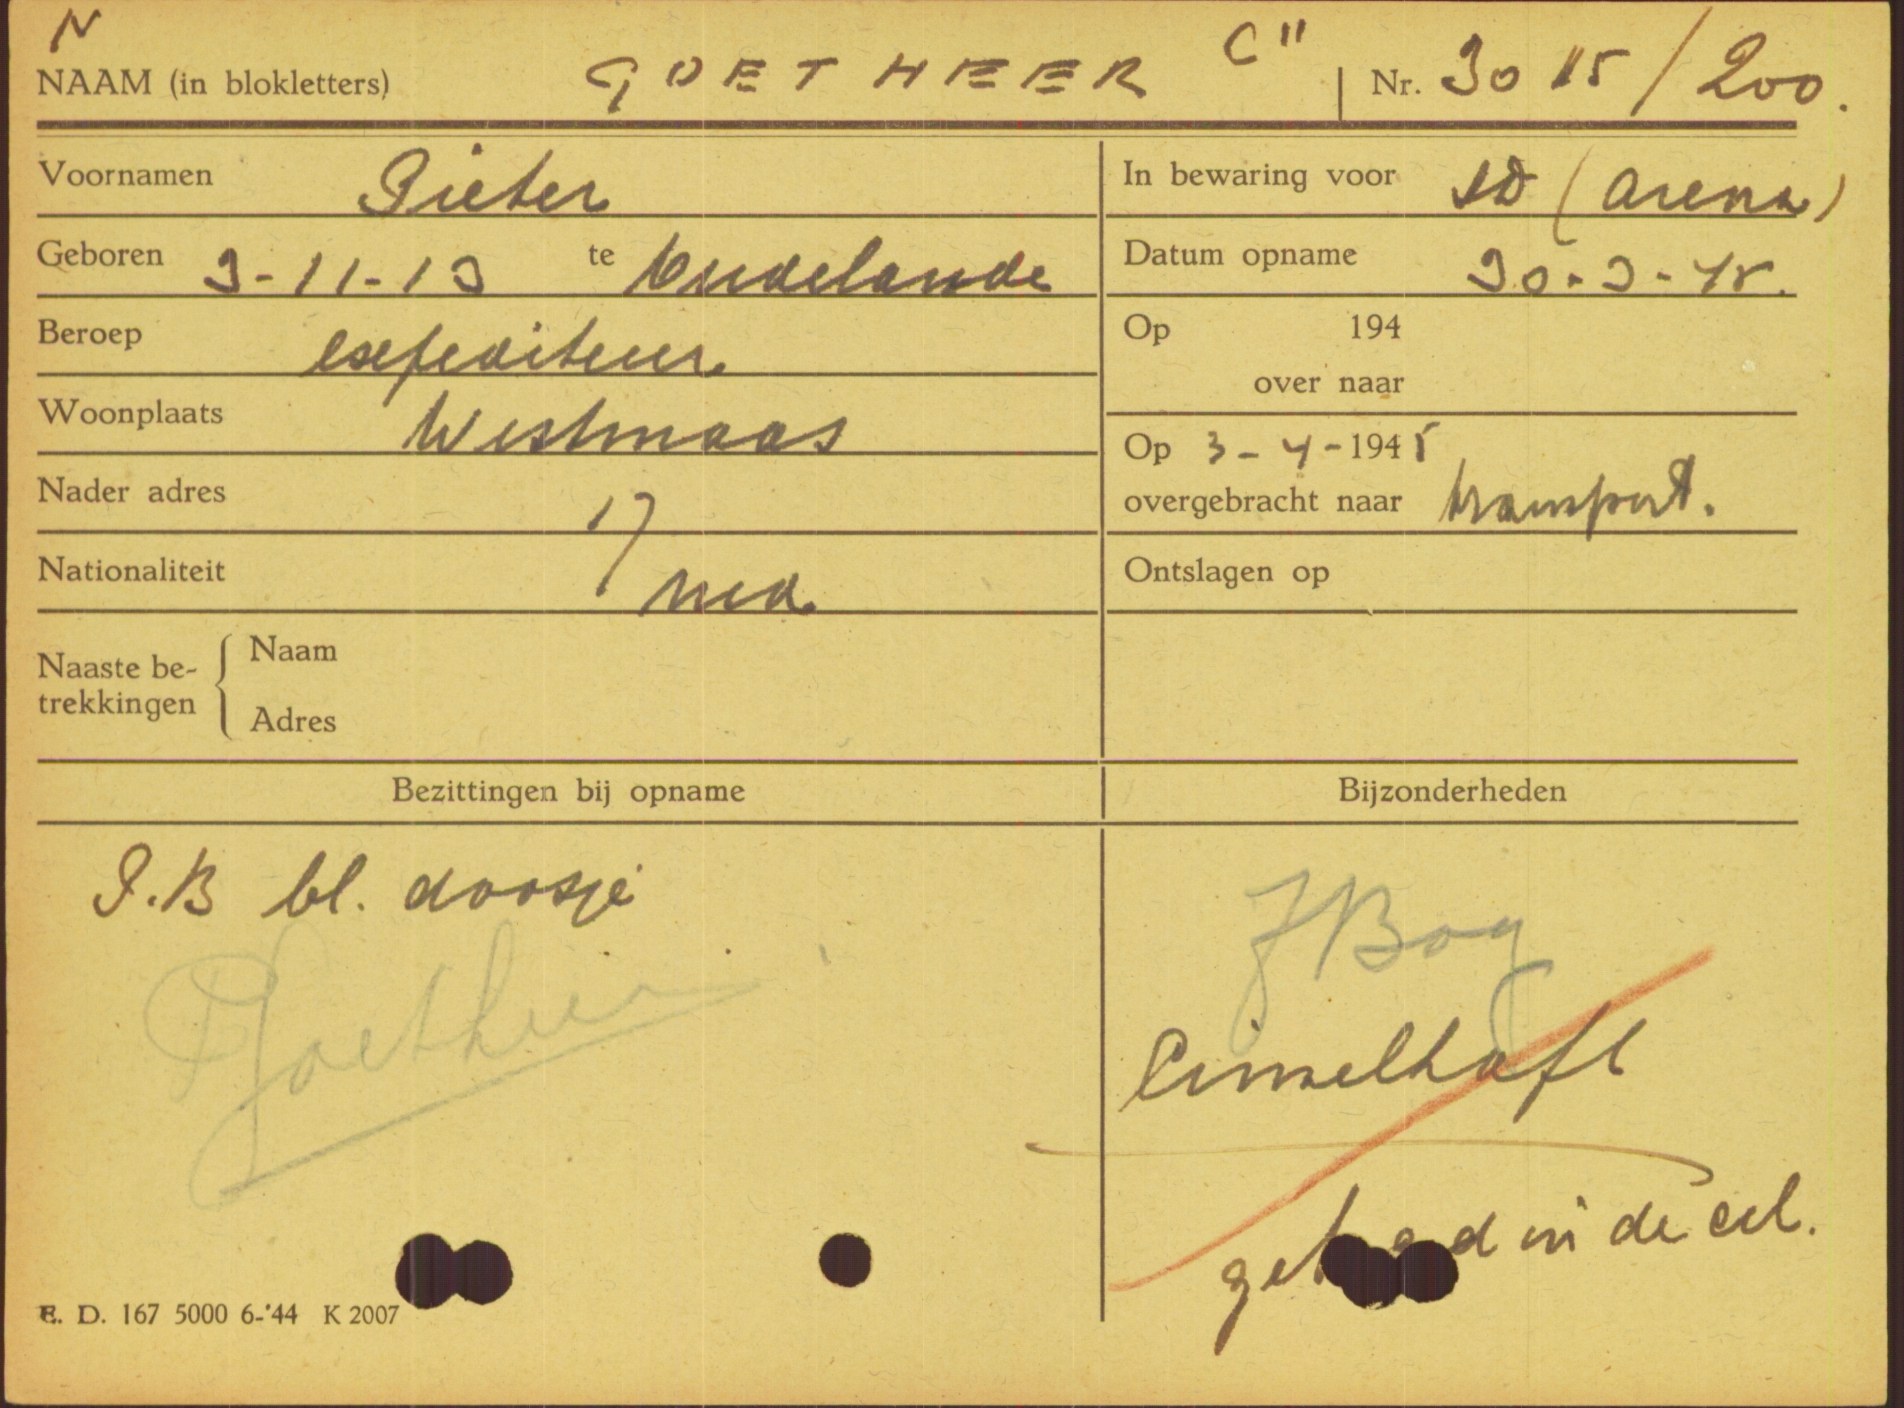 N
NAAM (in blokletters) GOETHEER C" Nr. 3015/200.
Voornamen Pieter
In bewaring voor SD (Arena)
Geboren 3-11-13 te Oudelande
Datum opname 30-3-45.
Beroep expediteur
Op 194
over naar
Woonplaats Westmaas
Op 3-4-1945
overgebracht naar transport.
Nader adres
Nationaliteit ned.
Ontslagen op
Naaste be-
trekkingen
Naam
Adres
Bezittingen bij opname
Bijzonderheden
P.B bl. doosje
Goetheer
Einzelhaft
in de cel.
E. D. 167 5000 6-'44 K 2007